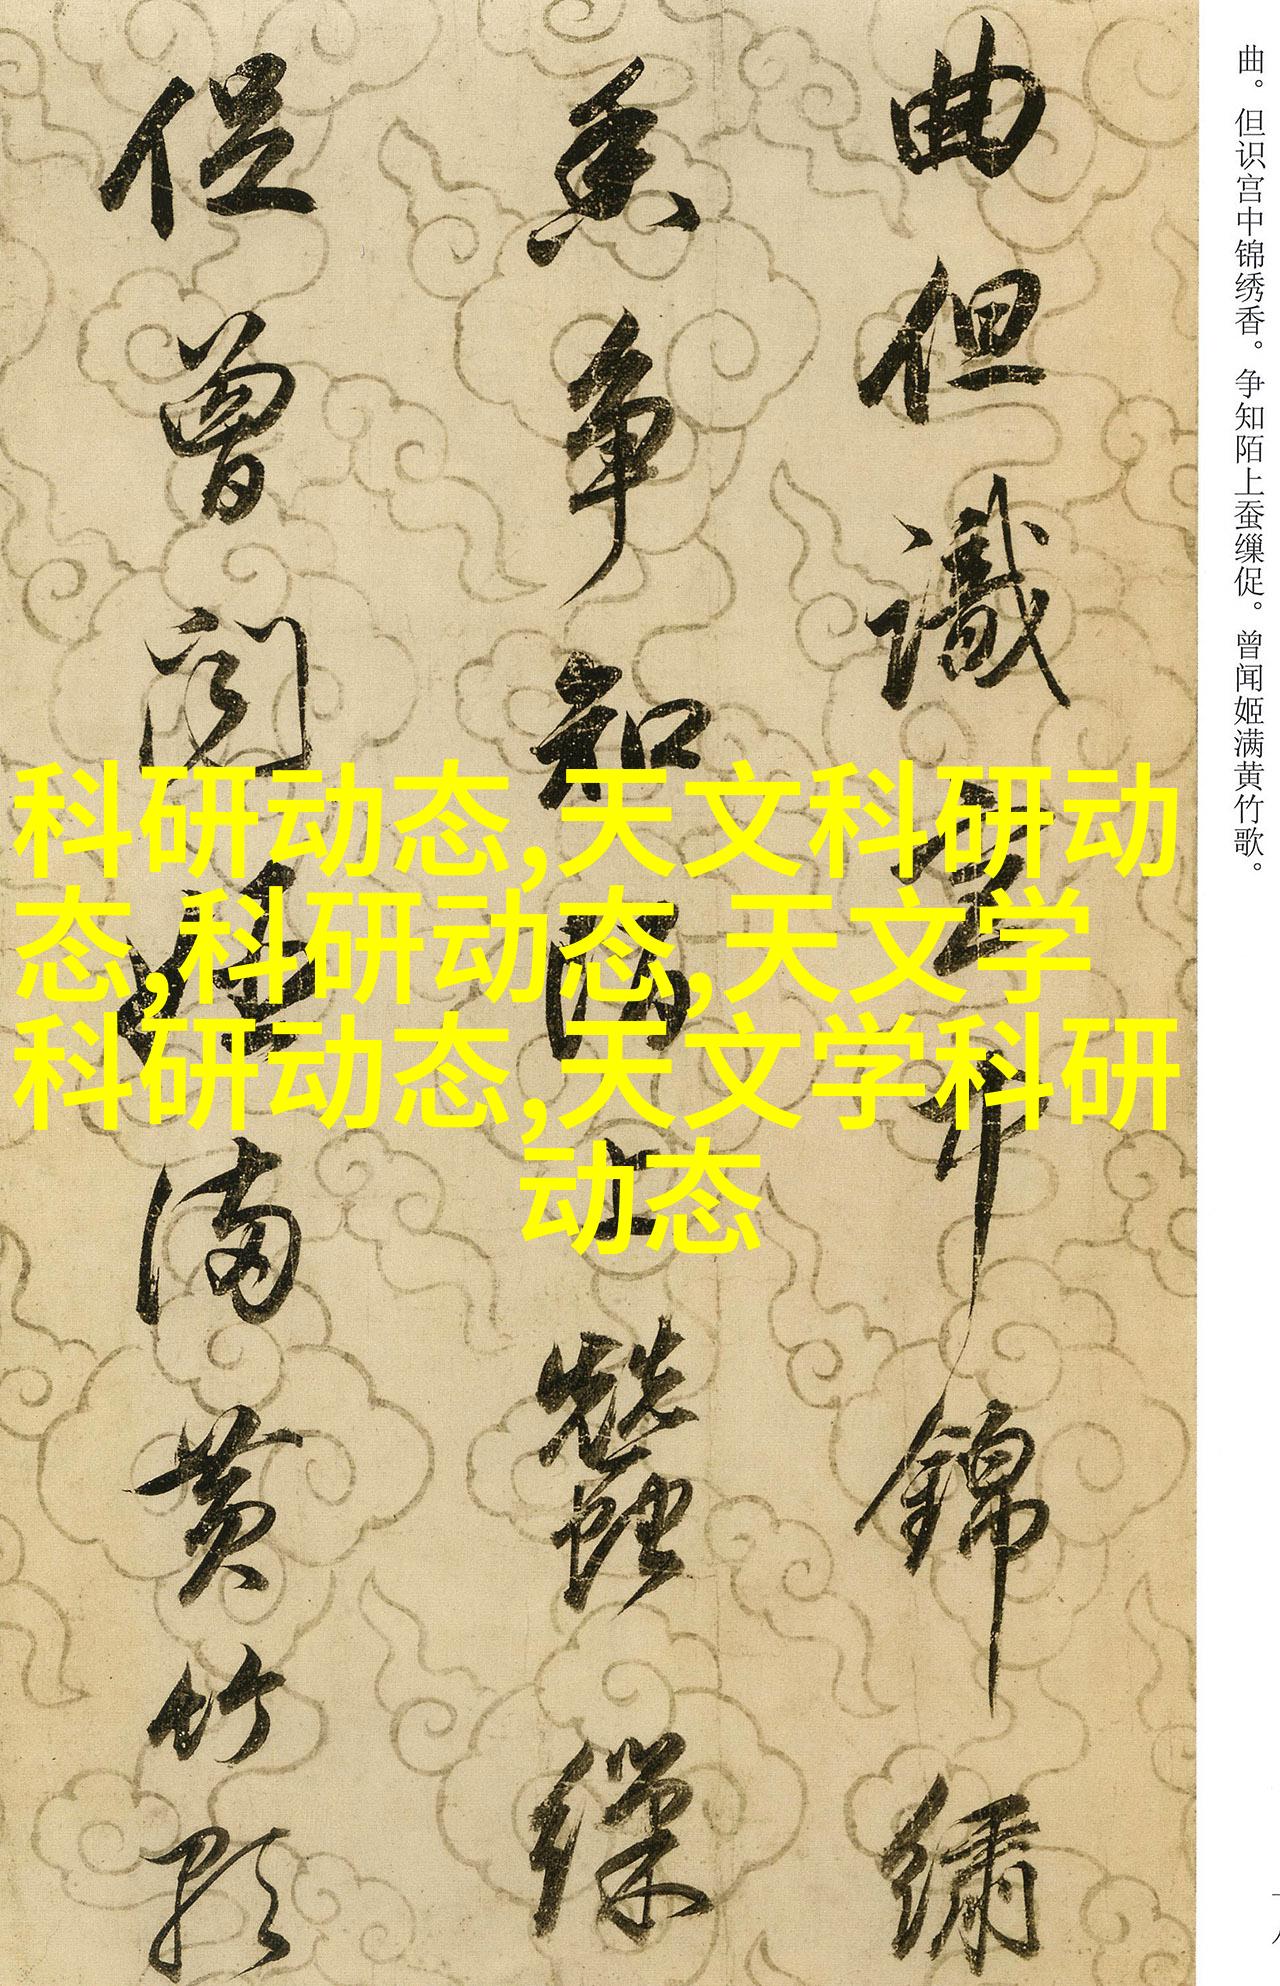 曲。但识宫中锦绣香。争知陌上蚕缫促。曾闻姬满黄竹歌。
曲但識宮中錦繡
香爭知陌上蠶繰
促曾聞姬滿黄竹歌
科研动态,天文科研动
态,科研动态,天文学
科研动态,天文学科研
动态